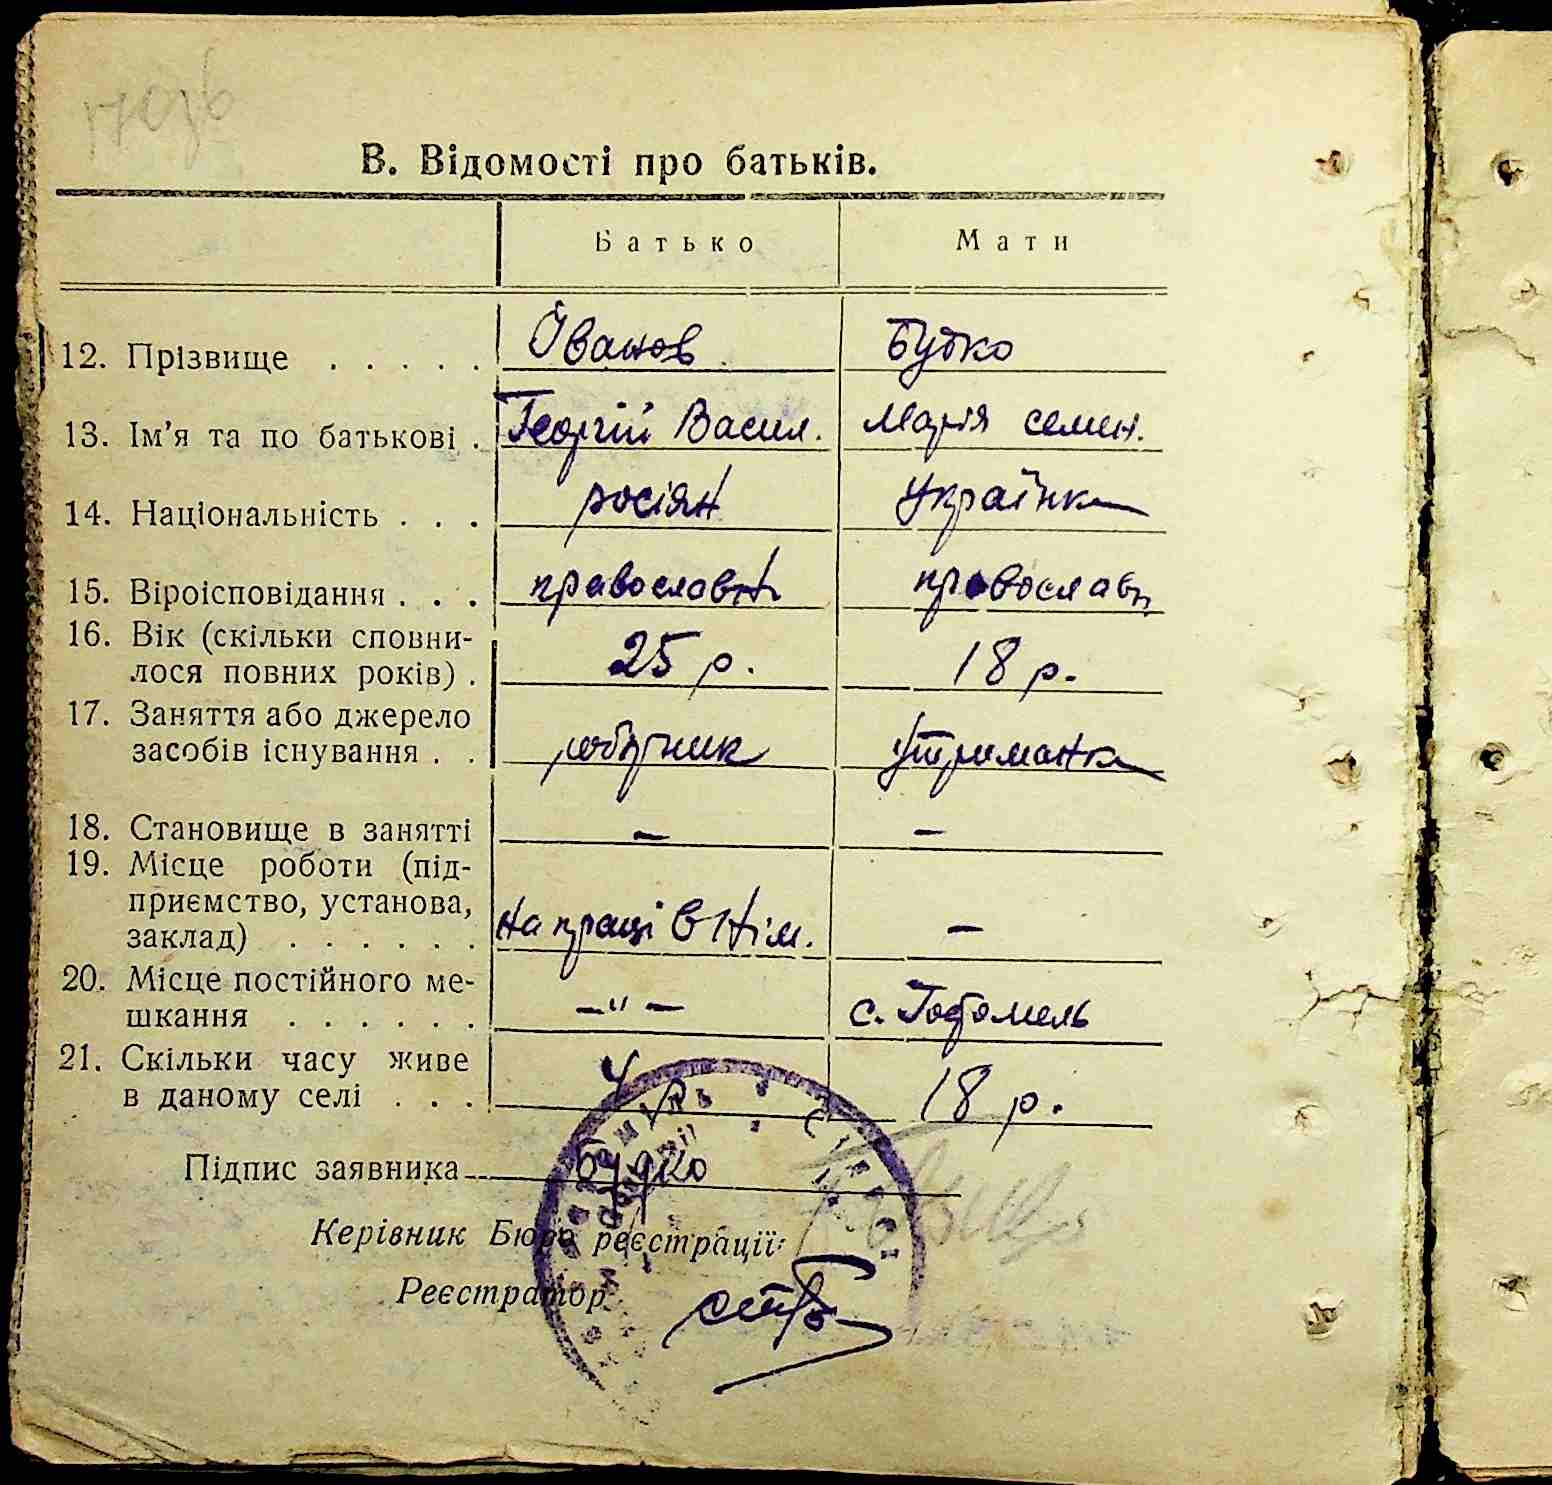 В. Відомості про батьків.
Батько Мати
12. Прізвище . . . . . Іванов Бутко
13. Ім'я та по батькові . Георгій Васил. Марія семен.
14. Національність . . . росіян Українка
15. Віроісповідання . . . православн православн
16. Вік (скільки сповни-
лося повних років) . 25 р. 18 р.
17. Заняття або джерело
засобів існування . . робітник Утриманка
18. Становище в занятті — —
19. Місце роботи (під-
приємство, установа,
заклад) . . . . . . на праці в Нім. —
20. Місце постійного ме-
шкання . . . . . . —"— с. Гостомель
21. Скільки часу живе
в даному селі . . . 4 р. 18 р.
Підпис заявника Будко
Керівник Бюро реєстрації:
Реєстратор